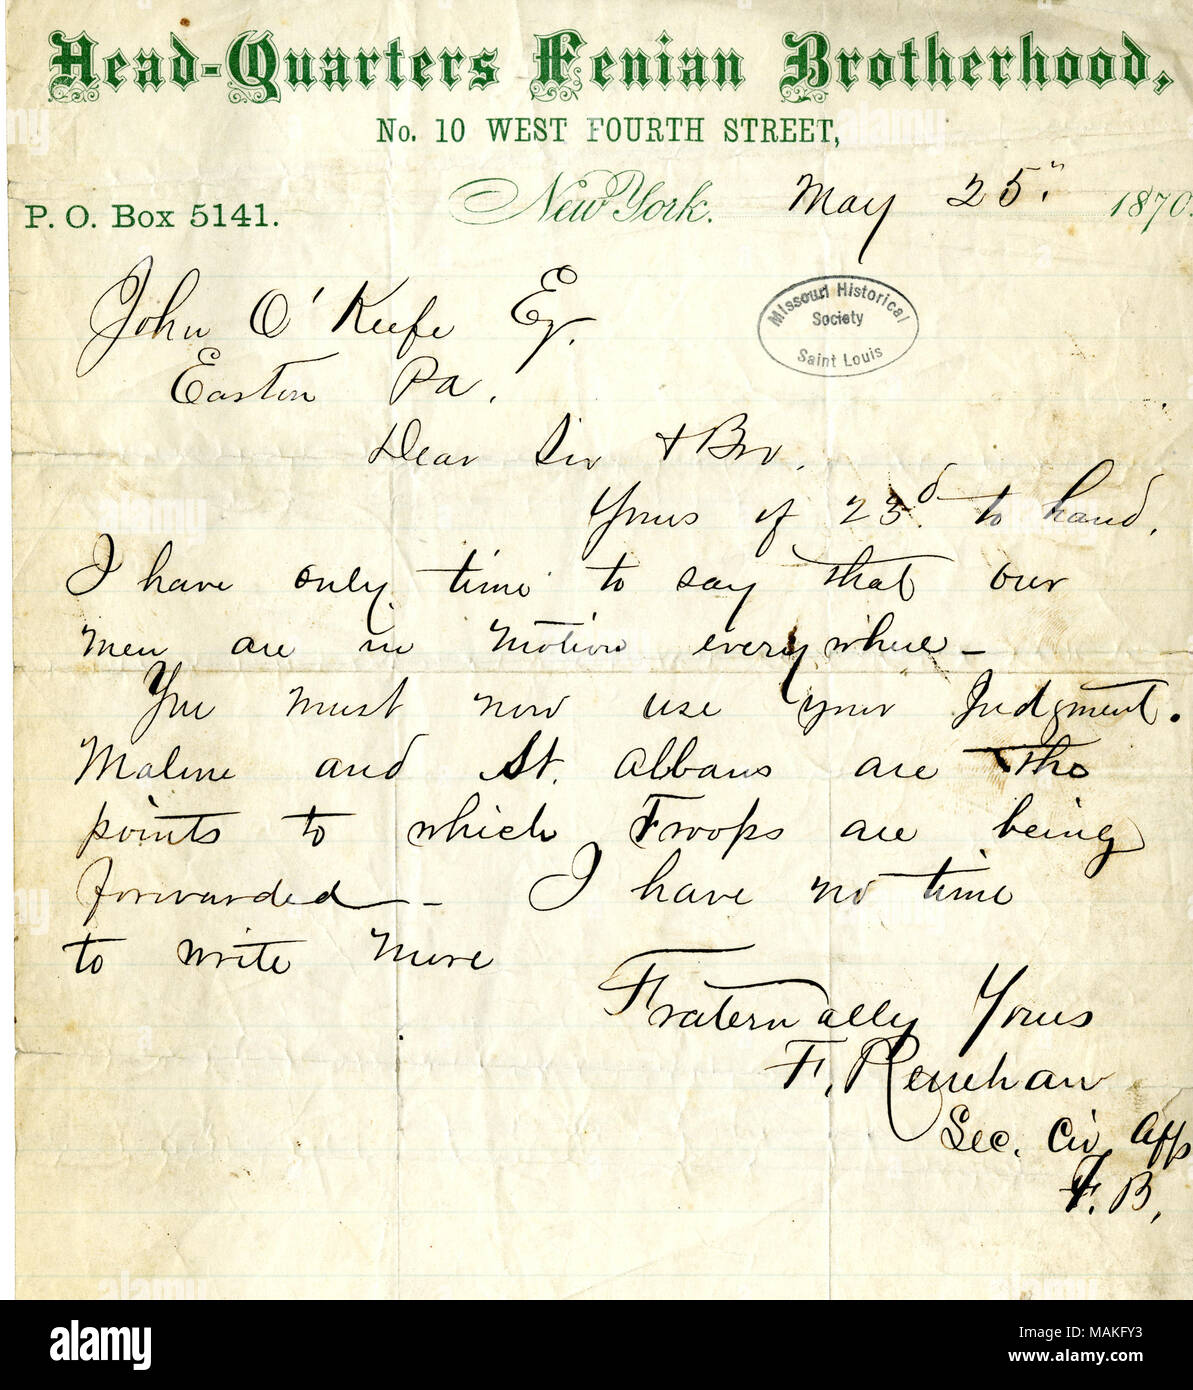 Head-Quarters Fenian Brotherhood,
No. 10 WEST FOURTH STREET,
P. O. Box 5141. New York. May 25" 1870.
John O'Keefe Esq.
Easton Pa.
Missouri Historical
Society
Saint Louis
Dear Sir & Bro.
Yours of 23d. to hand.
I have only time to say that our
men are in motion everywhere –
You must now use your Judgment.
Malone and St. Albans are the
points to which Troops are being
forwarded – I have no time
to write more
Fraternally Yours
F. Renehan
Sec. Civ. Affs
F. B.
alamy
Image ID: MAKFY3
www.alamy.com